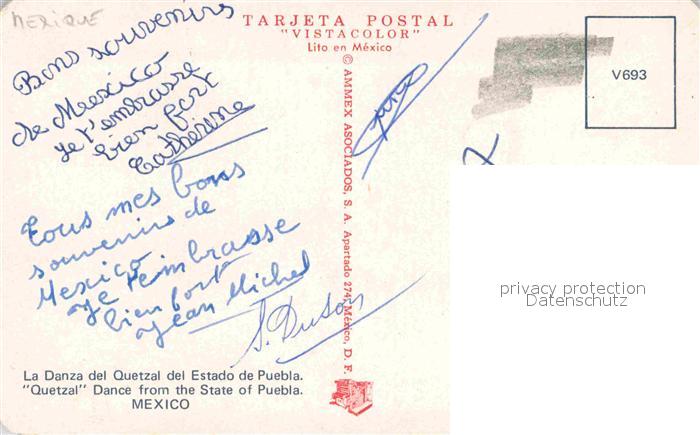 MEXIQUE
TARJETA POSTAL
"VISTACOLOR"
Lito en México
V693
Bons souvenirs
de Mexico
je t'embrasse
bien fort
Catherine
© AMMEX ASOCIADOS, S. A. Apartado 274, México, D. F.
Tous mes bons
souvenirs de
Mexico
je t'embrasse
bien fort
Jean Michel
La Danza del Quetzal del Estado de Puebla.
"Quetzal" Dance from the State of Puebla.
MEXICO
privacy protection
Datenschutz